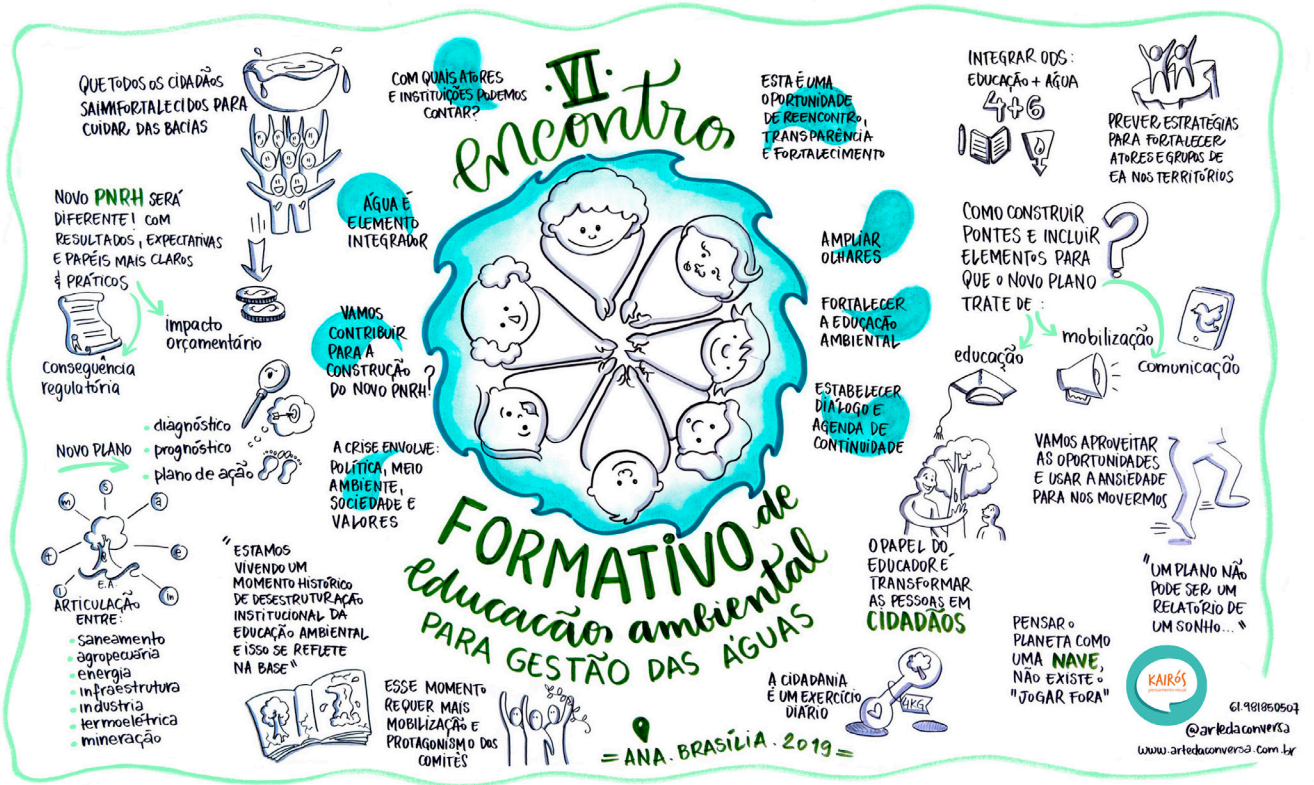 VI
encontro
FORMATIVO de
educação ambiental
PARA GESTÃO DAS ÁGUAS
= ANA. BRASÍLIA. 2019 =
QUE TODOS OS CIDADÃOS
SAIMFORTALECIDOS PARA
CUIDAR DAS BACIAS
NOVO PNRH SERÁ
DIFERENTE! COM
RESULTADOS, EXPECTATIVAS
E PAPÉIS MAIS CLAROS
& PRÁTICOS
impacto
orçamentário
consequência
regulatória
NOVO PLANO
diagnóstico
prognóstico
plano de ação
m
s
a
t
e
i
in
E.A.
ARTICULAÇÃO
ENTRE:
saneamento
agropecuária
energia
infraestrutura
industria
termoelétrica
mineração
COM QUAIS ATORES
E INSTITUIÇÕES PODEMOS
CONTAR?
ÁGUA É
ELEMENTO
INTEGRADOR
VAMOS
CONTRIBUIR
PARA A
CONSTRUÇÃO
DO NOVO PNRH?
A CRISE ENVOLVE:
POLÍTICA, MEIO
AMBIENTE,
SOCIEDADE E
VALORES
"ESTAMOS
VIVENDO UM
MOMENTO HISTÓRICO
DE DESESTRUTURAÇÃO
INSTITUCIONAL DA
EDUCAÇÃO AMBIENTAL
E ISSO SE REFLETE
NA BASE"
ESSE MOMENTO
REQUER MAIS
MOBILIZAÇÃO E
PROTAGONISMO DOS
COMITÊS
ESTA É UMA
OPORTUNIDADE
DE REENCONTRO,
TRANSPARÊNCIA
E FORTALECIMENTO
AMPLIAR
OLHARES
FORTALECER
A EDUCAÇÃO
AMBIENTAL
ESTABELECER
DIÁLOGO E
AGENDA DE
CONTINUIDADE
INTEGRAR ODS:
EDUCAÇÃO + ÁGUA
4+6
PREVER ESTRATÉGIAS
PARA FORTALECER
ATORES E GRUPOS DE
EA NOS TERRITÓRIOS
COMO CONSTRUIR
PONTES E INCLUIR
ELEMENTOS PARA
QUE O NOVO PLANO
TRATE DE:
?
educação
mobilização
comunicação
VAMOS APROVEITAR
AS OPORTUNIDADES
E USAR A ANSIEDADE
PARA NOS MOVERMOS
O PAPEL DO
EDUCADOR É
TRANSFORMAR
AS PESSOAS EM
CIDADÃOS
A CIDADANIA
É UM EXERCÍCIO
DIÁRIO
4KG
PENSAR O
PLANETA COMO
UMA NAVE,
NÃO EXISTE O
"JOGAR FORA"
"UM PLANO NÃO
PODE SER UM
RELATÓRIO DE
UM SONHO..."
KAIRÓS
pensamento visual
61.981850507
@artedaconversa
www.artedaconversa.com.br